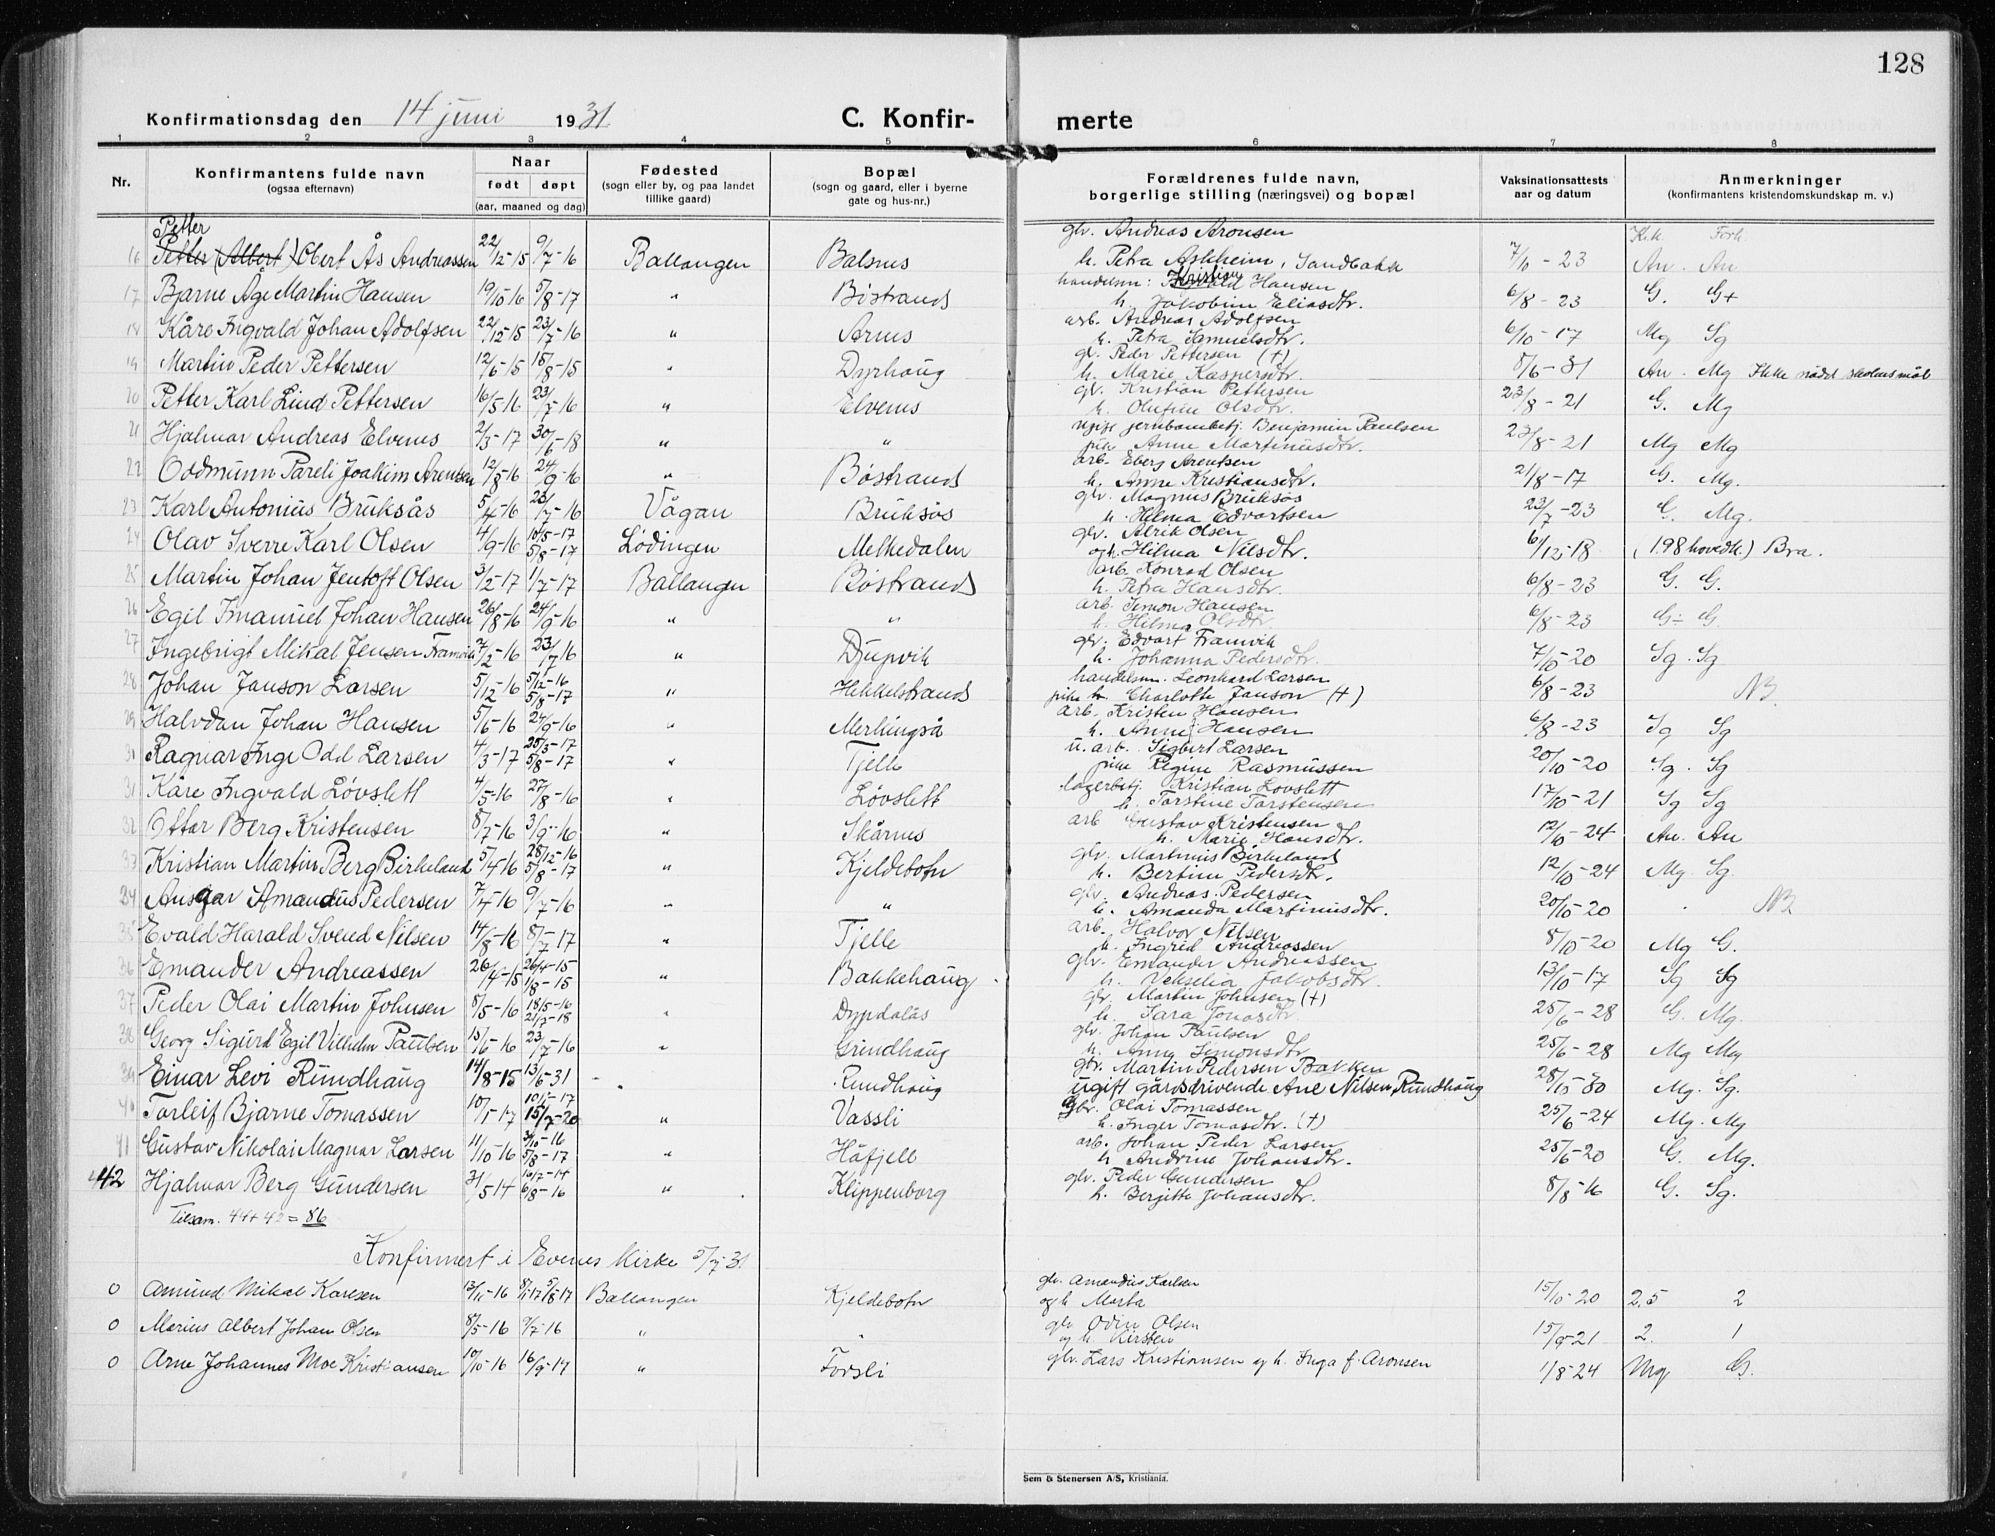 128
Konfirmationsdag den 14 juni 1931 C. Konfirmerte
1 2 3 4 5 6 7 8
Nr. Konfirmantens fulde navn (ogsaa efternavn) Naar født døpt (aar, maaned og dag) Fødested (sogn eller by, og paa landet tillike gaard) Bopæl (sogn og gaard, eller i byerne gate og hus-nr.) Forældrenes fulde navn, borgerlige stilling (næringsvei) og bopæl Vaksinationsattests aar og datum Anmerkninger (konfirmantens kristendomskundskap m. v.)
Petter gbr. Andreas Aronsen
16 Petter (Albert) Obert Ås Andreassen 22/12-15 9/7-16 Ballangen Balsnes h. Petra Askheim, Sandbakk 7/10-23 An. An
17 Bjarne Åge Martin Hansen 19/10-16 5/8-17 " Bøstrand handelsm: Kristian Hansen h. Jakobine Eliasdtr. 6/8-23 G. G+
18 Kåre Ingvald Johan Adolfsen 22/12-15 23/7-16 " Arnes arb. Andreas Adolfsen h. Petra Samuelsdtr. 6/10-17 Mg Sg
19 Martin Peder Pettersen 12/6-15 15/8-15 " Dyrhaug gb. Peder Pettersen (†) h. Marie Kaspersdtr. 5/6-31 An. Mg Ikke nådd skolens mål
20 Petter Karl Lind Pettersen 16/5-16 23/7-16 " Elvenes gbr. Kristian Pettersen h. Olufine Olsdtr. 23/8-21 G. Mg
21 Hjalmar Andreas Elvenes 2/3-17 30/6-18 " " ugift jernbanebetj. Benjamin Paulsen pike Anne Martinusdtr. 23/8-21 Mg Mg
22 Oddmunn Pareli Joakim Arentsen 12/8-16 24/9-16 " Bøstrand arb. Eberg Arentsen h. Anne Kristiansdtr. 21/8-17 G. Mg.
23 Karl Antonius Bruksås 5/4-16 23/7-16 Vågan Bruksås gbr. Magnus Bruksås h. Helma Edvartsen 23/7-23 G. Mg.
24 Olav Sverre Karl Olsen 4/9-16 10/5-17 5/8-17 Lødingen Melkedalen gbr. Alrik Olsen og h. Hilma Nilsdtr. 6/12-18 (198 hovedk.) Bra.
25 Martin Johan Jentoft Olsen 3/2-17 1/7-17 Ballangen Bøstrand arb. Konrad Olsen h. Petra Hansdtr. 6/8-23 G. G.
26 Egil Imanuel Johan Hansen 26/8-16 24/9-16 " " arb. Simon Hansen h. Hilma Olsdtr. 6/8-23 G÷ G
27 Ingebrigt Mikal Jensen Framvik 2/2-16 23/7-16 " Djupvik gbr. Edvart Framvik h. Johanna Pedersdtr. 7/10-20 Sg. Sg
28 Johan Janson Larsen 5/12-16 5/12-16 5/8-17 " Hekkelstrand handelsm. Leonhard Larsen pike h. Charlotte Janson (†) 6/8-23 NB.
29 Halvdan Johan Hansen 5/6-16 24/9-16 " Merkingså arb. Kristen Hansen h. Anne Hansen 6/8-23 Sg Sg
30 Ragnar Inge Odd Larsen 4/3-17 25/3-17 5/8-17 " Tjelle u. arb. Sigbert Larsen pike Regine Rasmussen 20/10-20 Sg. Sg
31 Kåre Ingvald Løvslett 4/5-16 27/8-16 " Løvslett lagerbetj. Kristian Løvslett h. Torstine Torstensen 17/10-21 Sg Sg
32 Ottar Berg Kristensen 8/7-16 3/9-16 " Skårnes arb Gustav Kristensen h. Marie Hansdtr. 12/10-24 An. An
33 Kristian Martin Berg Birkeland 5/4-16 28/12-16 5/8-17 " Kjeldebotn gbr. Martinus Birkeland h. Bertine Pedersdtr. 12/10-24 Mg. Sg.
34 Ansgar Amandus Pedersen 7/4-16 9/7-16 " " gbr. Andreas Pedersen h. Amanda Martinusdtr. 20/10-20 NB
35 Evald Harald Svend Nilsen 14/8-16 8/7-17 " Tjelle arb. Halvor Nilsen h. Ingrid Andreassen 8/10-20 Mg G.
36 Emander Andreassen 26/4-15 26/4-15 1/8-15 " Bakkehaug gbr. Emander Andreassen h. Vekselia Jakobsdtr. 13/10-17 Sg Sg
37 Peder Olai Martin Johnsen 8/5-16 18/5-16 21/7-18 " Dypdalås gbr. Martin Johnsen (†) h. Sara Jonasdtr. 25/6-28 G. Mg.
38 Georg Sigurd Egil Vilhelm Paulsen 15/6-16 23/7-16 " Grindhaug gbr. Johan Paulsen h. Anna Simonsdtr. 25/6-28 Mg Mg
39 Einar Levi Rundhaug 14/8-15 13/6-31 " Rundhaug gbr. Martin Pedersen Bakken ugift gårdsdrivende Ane Nilsen, Rundhaug 28/10-30 Mg. Sg.
40 Torleif Bjarne Tomassen 10/1-17 10/2-17 15/7-20 " Vassli gbr. Olai Tomassen h. Inger Tomasdtr. (†) 25/6-24 Mg. Mg
41 Gustav Nikolai Magnar Larsen 11/10-16 3/10-16 5/8-17 " Håfjell arb. Johan Peder Larsen h Andrine Johansdtr. 25/6-20 G. Mg.
42 Hjalmar Berg Gundersen 31/5 14 10/7-14 6/8-16 " Klippenborg gbr. Peder Gundersen h. Berjitte Johansdtr. 8/8-16 G. Sg.
Tilsam. 44+42=86
Konfirmert i Evenes kirke 5/7-31
0 Amund Mikal Karlsen 13/11-16 8/1 17 5/8 17 Ballangen Kjeldebotn gbr. Amandus Karlsen og h Marta 15/10-20 2,5 2
0 Marius Albert Johan Olsen 8/5-16 9/7-16 " " gbr Odin Olsen og h. Kirsten 15/9-21 2. 1
0 Arne Johannes Moe Kristiansen 10/10-16 16/9-17 " Forsli gbr. Lars Kristiansen og h. Inga f. Aronsen 1/8-24 Mg G.
Sem & Stenersen A/S, Kristiania.